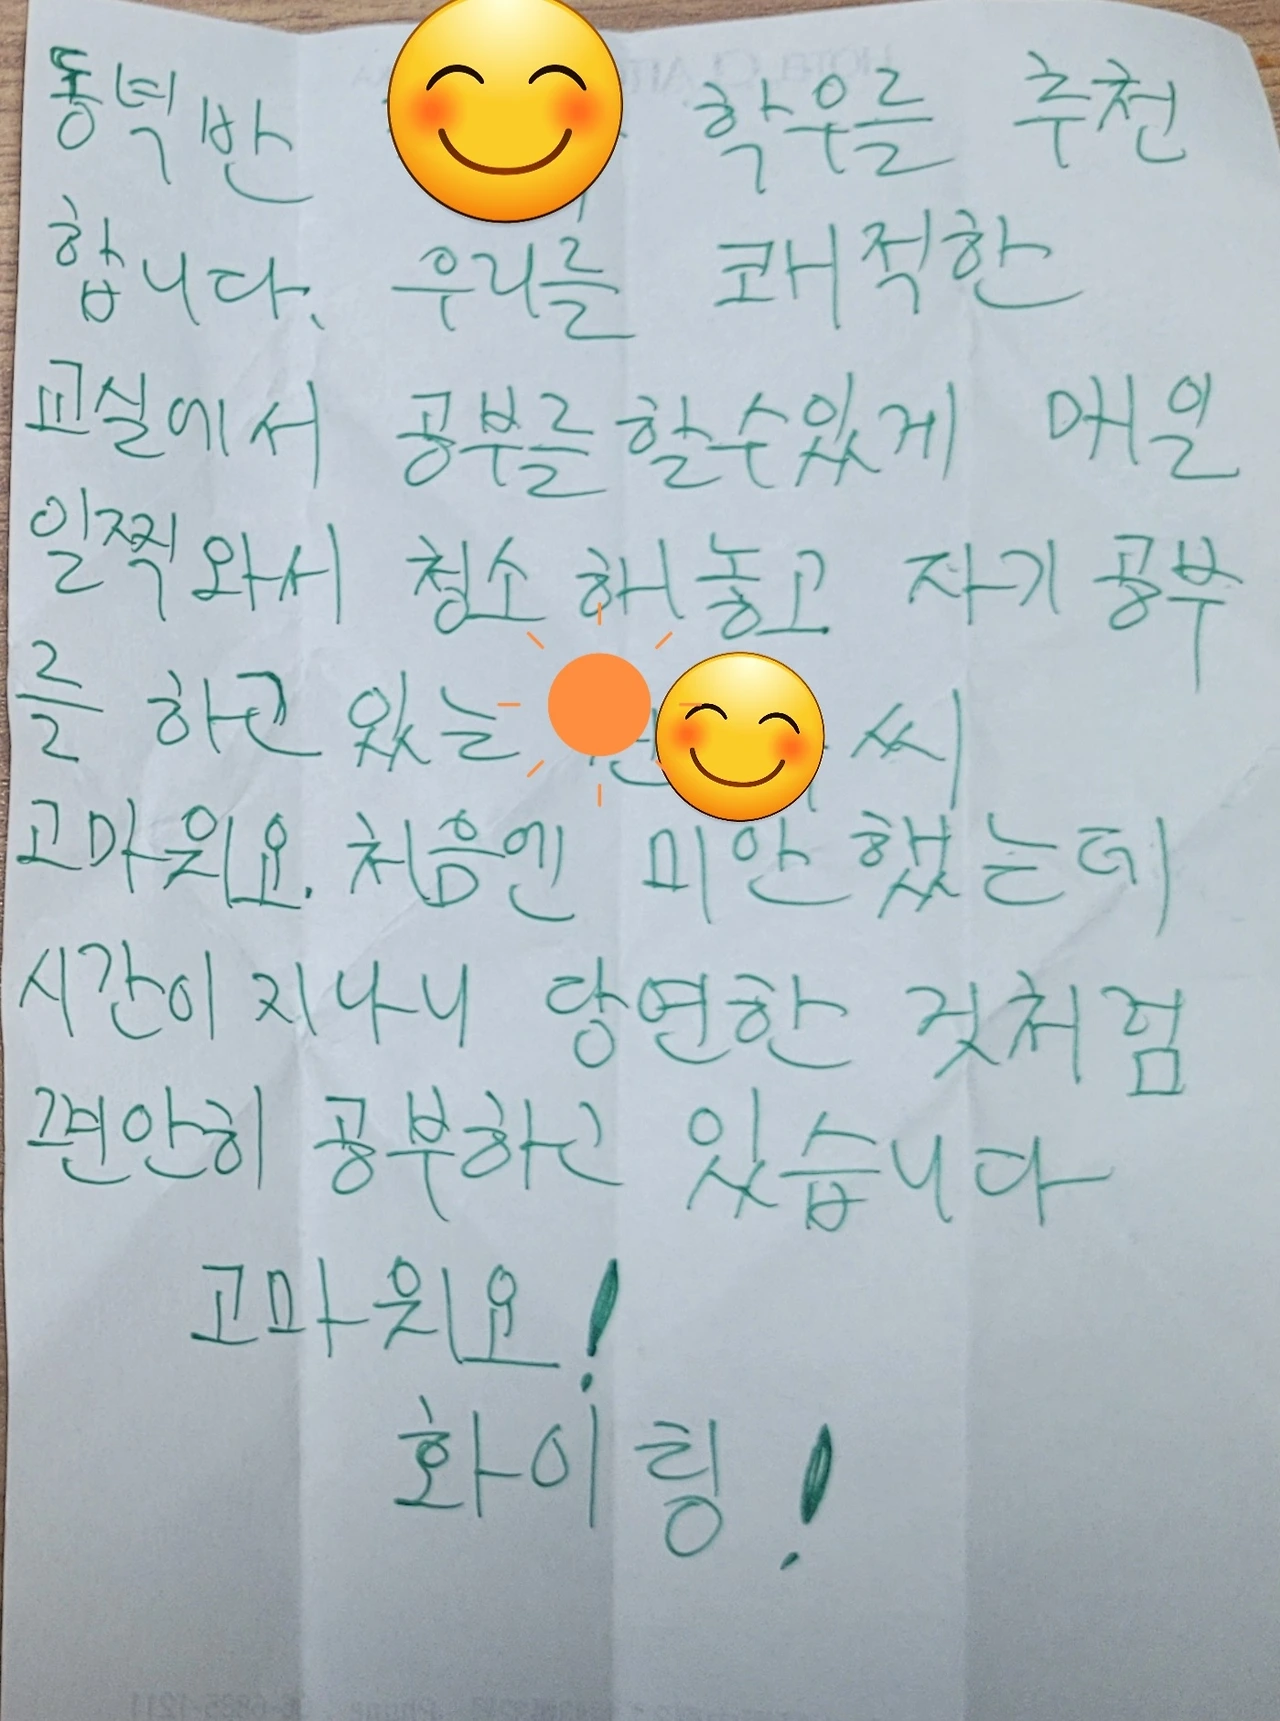 동녁반 학우를 추천
합니다. 우리를 쾌적한
교실에서 공부를 할수있게 매일
일찍와서 청소 해놓고 자기 공부
를 하고 있는 씨
고마워요. 처음엔 미안했는데
시간이 지나니 당연한 것처럼
편안히 공부하고 있습니다
고마워요!
화이링!